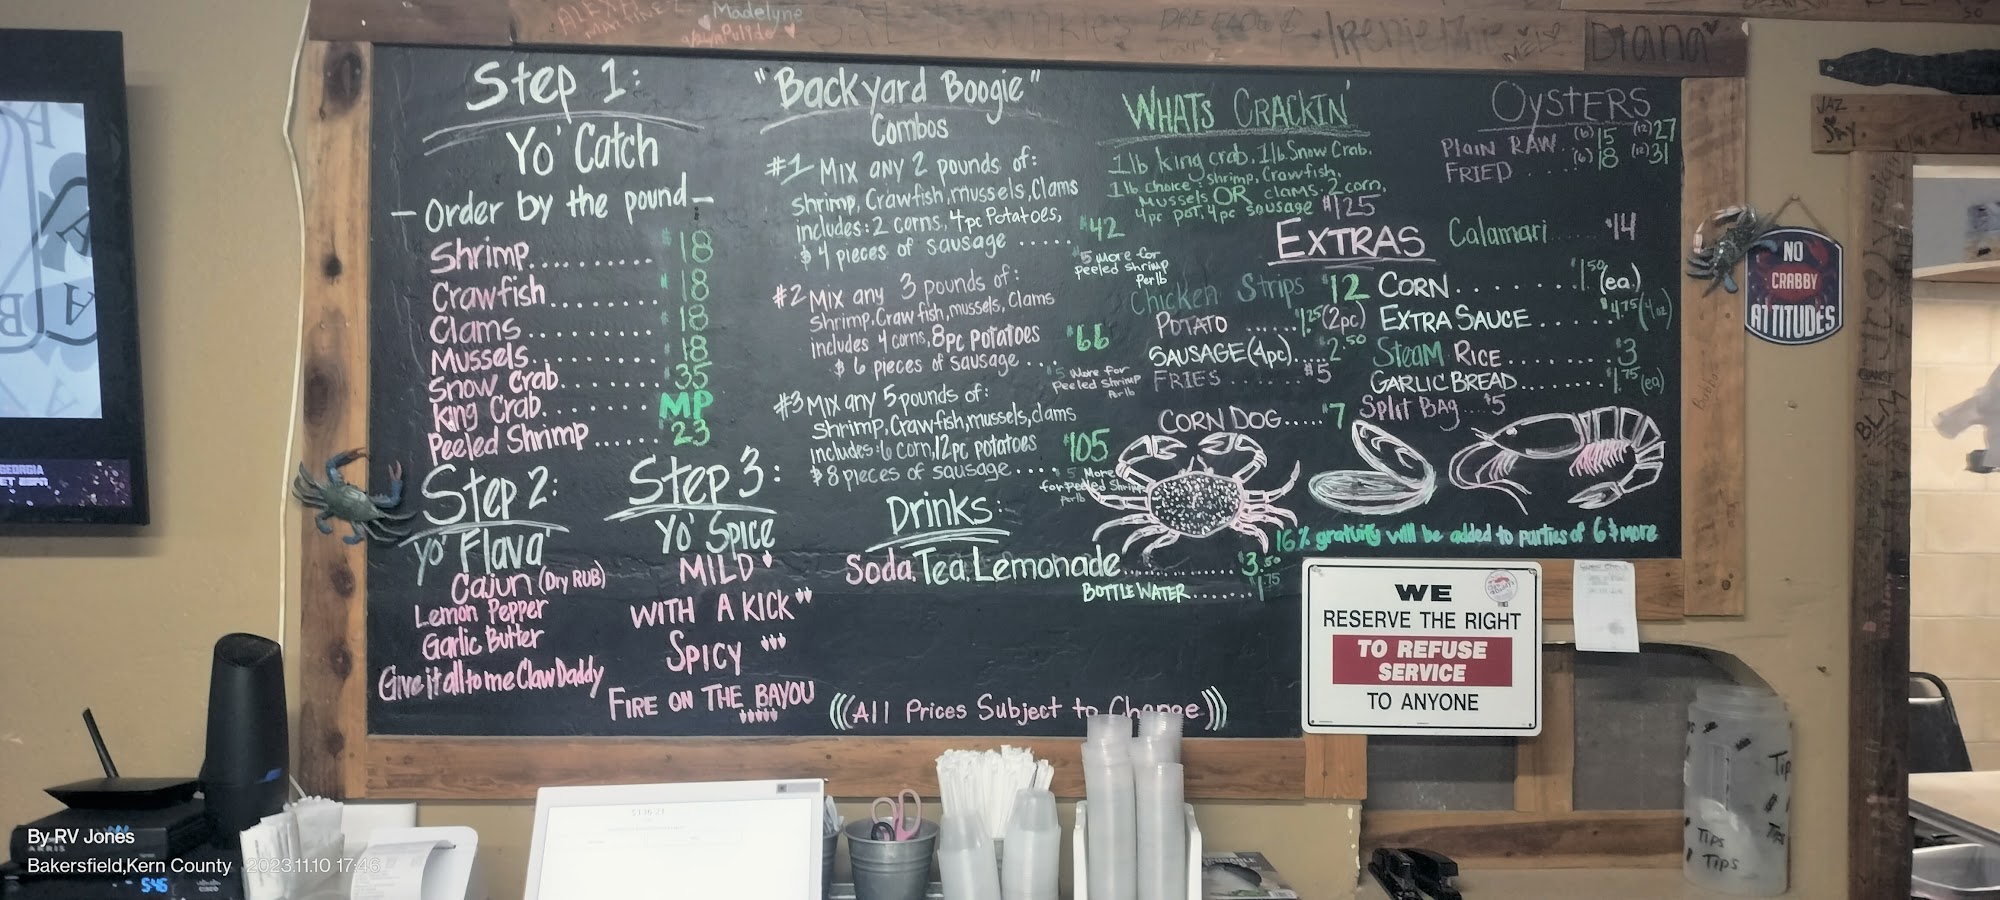 Madelyne
Diana
Step 1:
Yo' Catch
- Order by the pound -
Shrimp.......... $18
Crawfish....... $18
Clams.......... $18
Mussels.......... $18
Snow Crab......... $35
King Crab......... MP
Peeled Shrimp...... 23
Step 2:
Yo' Flava'
Cajun (Dry RUB)
Lemon Pepper
Garlic Butter
Give it all to me Claw Daddy
Step 3:
Yo' Spice
MILD
WITH A KICK
SPICY
FIRE ON THE BAYOU
"Backyard Boogie"
Combos
#1 Mix any 2 pounds of:
shrimp, Crawfish, mussels, Clams
includes: 2 corns, 4pc Potatoes,
$ 4 pieces of sausage ..... $42
$5 More for
Peeled Shrimp
Per lb
#2 Mix any 3 pounds of:
Shrimp, Crawfish, mussels, Clams
includes 4 corns, 8pc potatoes
$ 6 pieces of sausage ... $66
$5 More for
Peeled Shrimp
Per lb
#3 Mix any 5 pounds of:
Shrimp, Crawfish, mussels, clams
includes: 6 corn, 12pc potatoes
$ 8 pieces of sausage.... $105
$5 More
for Peeled Shrimp
Per lb
Drinks:
Soda, Tea, Lemonade............ $3.50
BOTTLE WATER....... $1.75
(((All Prices Subject to Change)))
WHATs CRACKIN'
1lb king crab, 1lb Snow Crab,
1lb choice: shrimp, Crawfish,
Mussels OR clams. 2 corn,
4pc pot, 4pc sausage $125
OYSTERS
Plain RAW (6) 15 (12) 27
FRIED .... (6) 18 (12) 31
EXTRAS
Calamari...... $14
Chicken Strips $12
POTATO ..... $1.25 (2pc)
SAUSAGE (4pc).... $2.50
FRIES ........ $5
CORN DOG..... $7
CORN......... $1.50 (ea.)
EXTRA SAUCE ...... $4.75 (4oz)
Steam RICE........ $3
GARLIC BREAD........ $1.75 (ea)
Split Bag... $5
16% gratuity will be added to parties of 6 & more
NO
CRABBY
ATTITUDES
WE
RESERVE THE RIGHT
TO REFUSE
SERVICE
TO ANYONE
JAZ
GEORGIA
Tips
TIPS
TIPS
5:46
CISCO
ARRIS
By RV Jones
Bakersfield,Kern County 2023.11.10 17:46